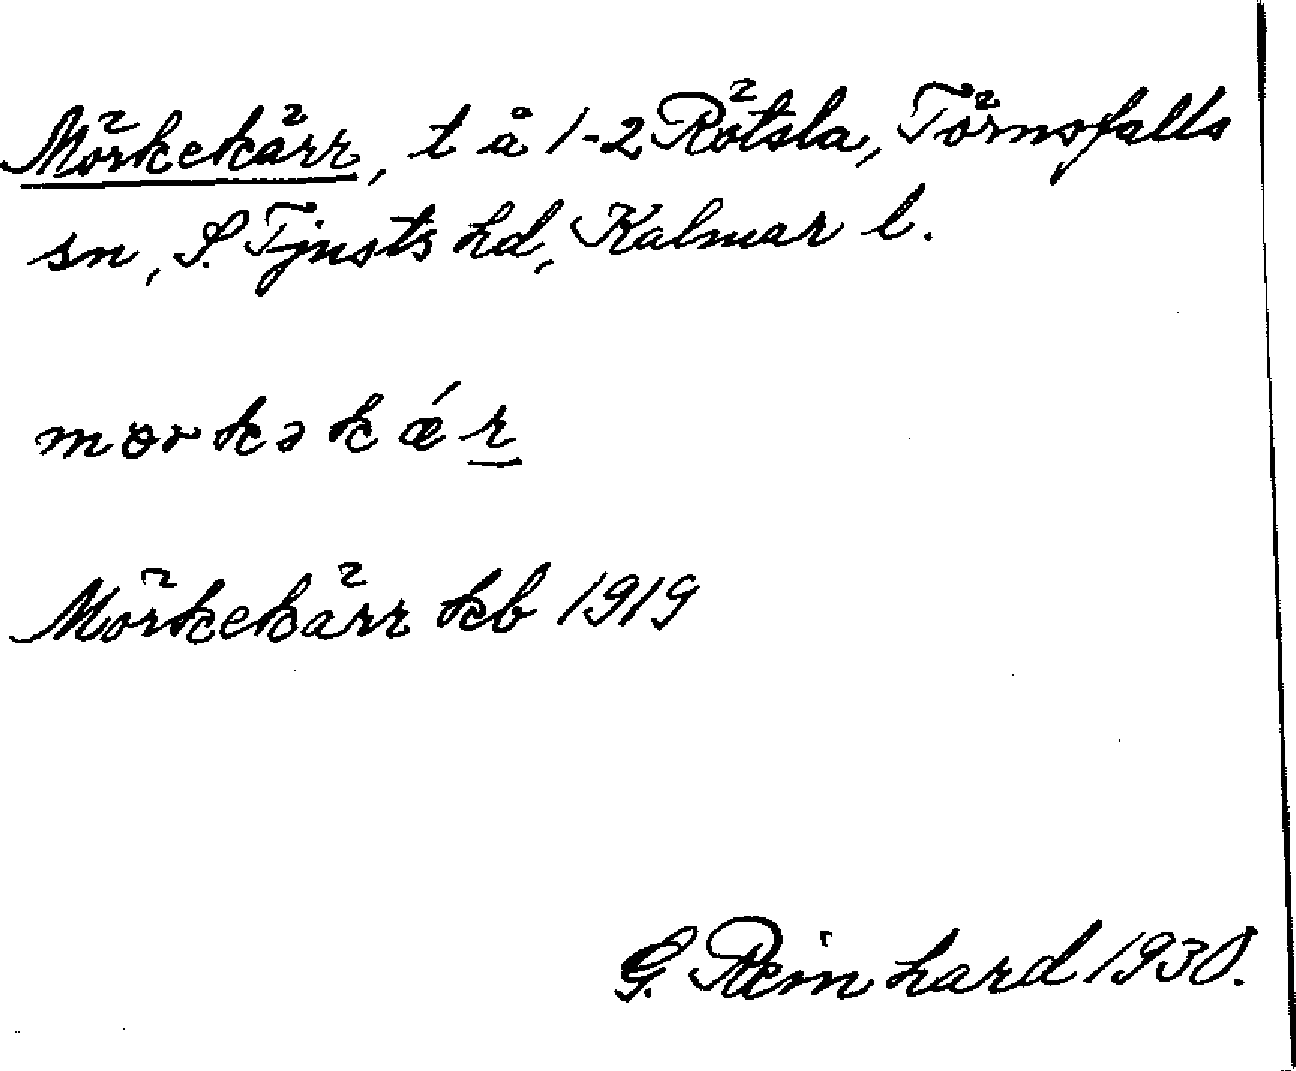 Mörkekärr, t å 1-2 Rötsla, Törnsfalls
sn, S. Tjusts hd, Kalmar l.
mörkəkǽr
Mörkekärr kb 1919
G. Reinhard 1930.